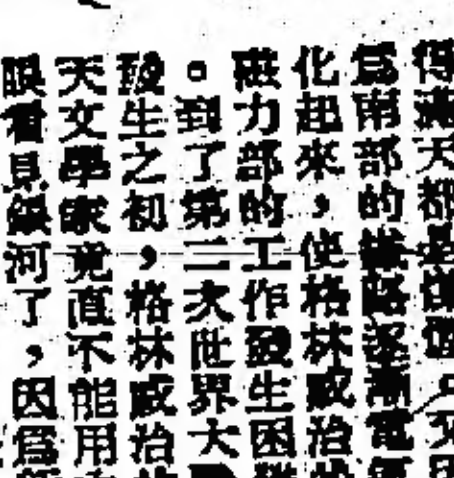 得滿天都是
為南部的鐵路逐漸電
化起來，使格林威治
磁力部的工作發生困難
。到了第二次世界大
發生之初，格林威治
天文學家竟直不能用
眼看見銀河了，因為